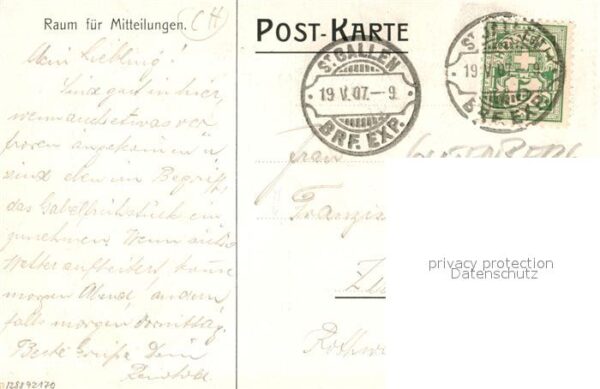 Raum für Mitteilungen.
(CH)
POST-KARTE
ST GALLEN
19 V. 07. – 9
BRF. EXP.
ST GALLEN
19 V. 07. – 9
BRF. EXP.
5
Mein Liebling!
Sind gut in hier,
wenn auch etwas ver
froren angekommen u
sind eben im Begriff,
das Gabelfrühstück ein
zunehmen. Wenn
Wetter aufheitert, komme
morgen Abend, andern
falls morgen Vormittag.
Beste Grüße Dein
Reinhold
Frau
privacy protection
Datenschutz